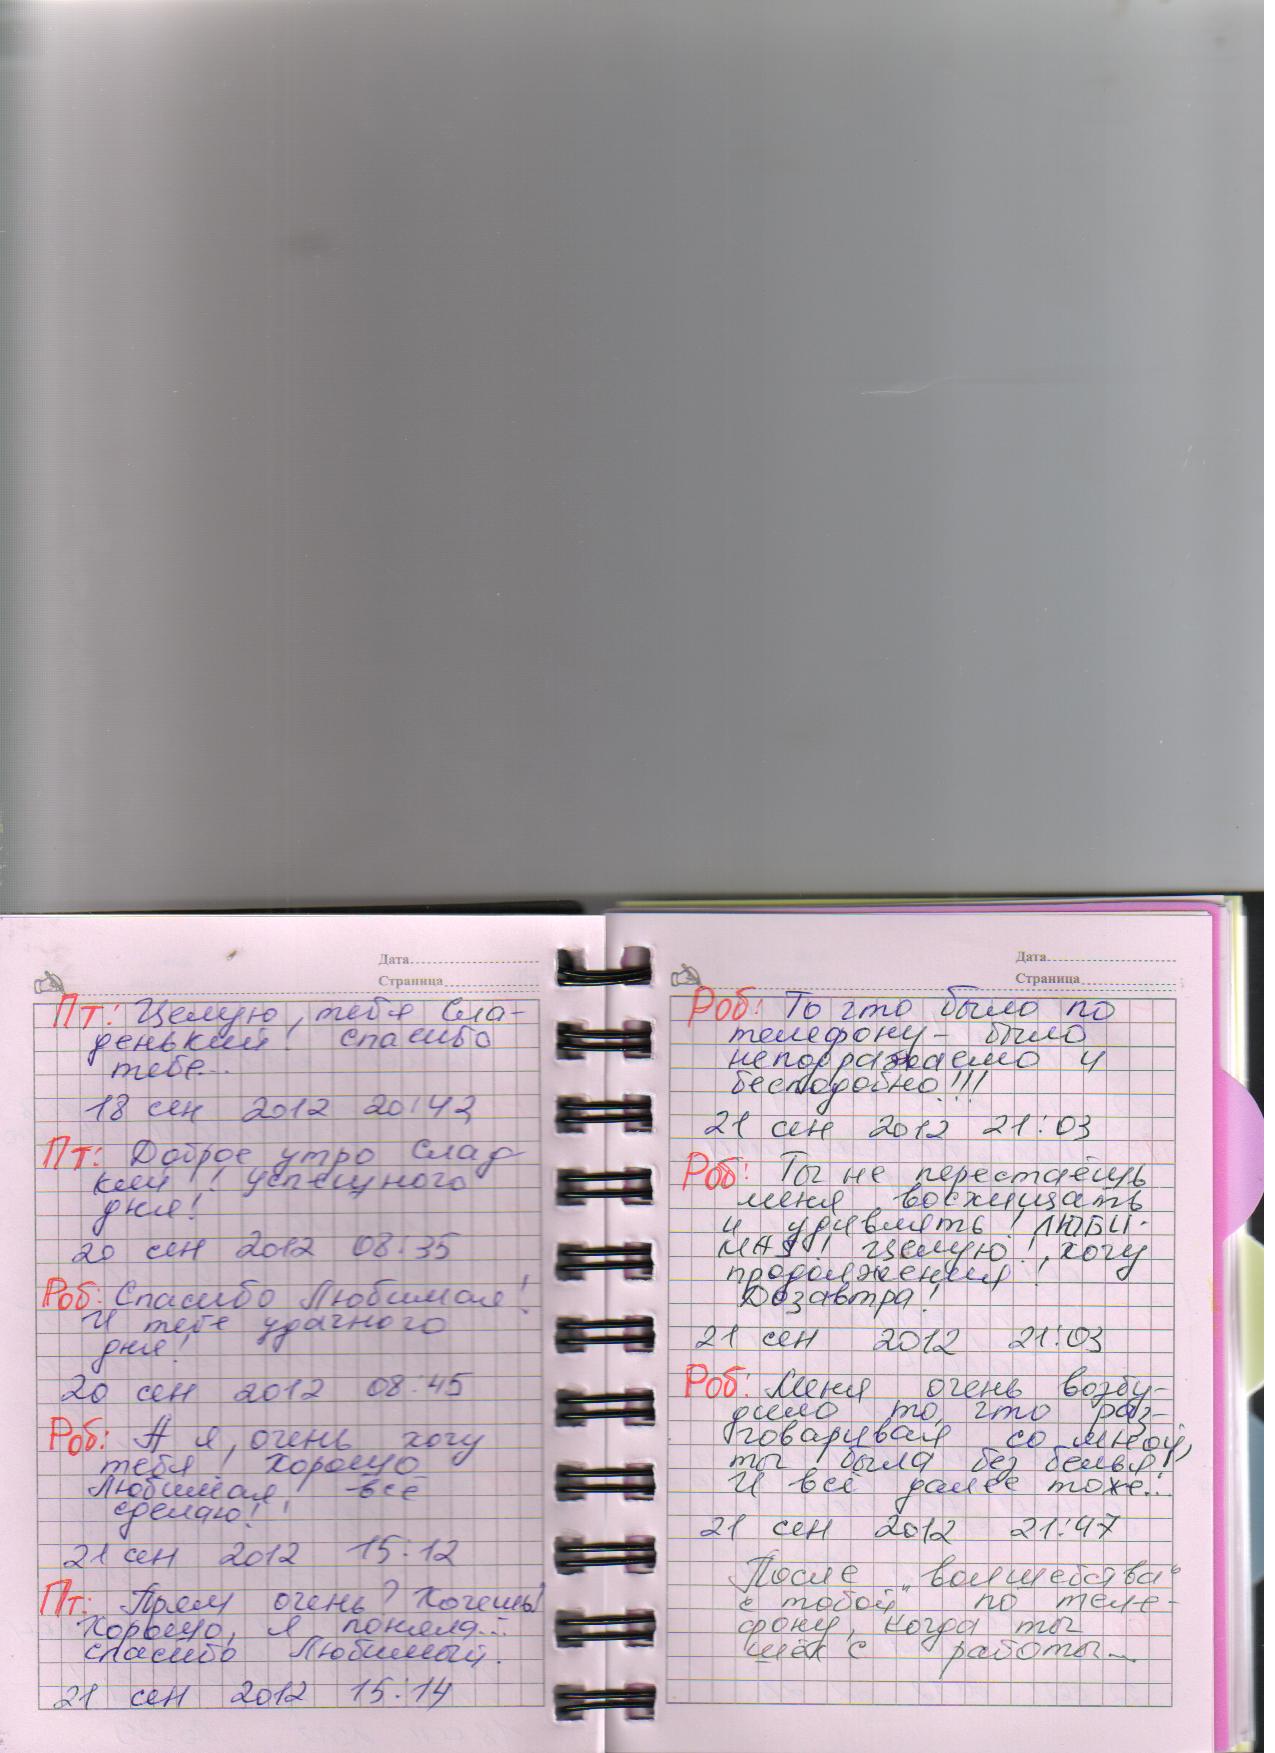 Дата
Страница
Пт: Целую, тебя Сла-
денький! спасибо
тебе...
18 сен 2012 20:42
Пт: Доброе утро Слад-
кий! Успешного
дня!
20 сен 2012 08:35
Роб: Спасибо Любимая!
И тебе удачного
дня!
20 сен 2012 08:45
Роб: А я, очень хочу
тебя! Хорошо
Любимая, всё
сделаю!!
21 сен 2012 15:12
Пт: Прям очень? Хочешь!
Хорошо, я поняла...
спасибо Любимый.
21 сен 2012 15:14
Дата
Страница
Роб: То что было по
телефону - было
неподражаемо и
бесподобно!!!
21 сен 2012 21:03
Роб: Ты не перестаёшь
меня восхищать
и удивлять! ЛЮБИ-
МАЯ!! Целую!, хочу
продолжения!
Дозавтра!
21 сен 2012 21:03
Роб: Меня очень возбу-
дило то, что раз-
говаривая со мной,
ты была без белья!
И всё далее тоже...
21 сен 2012 21:47
После "волшебства"
с тобой по теле-
фону, когда ты
шёл с работы...